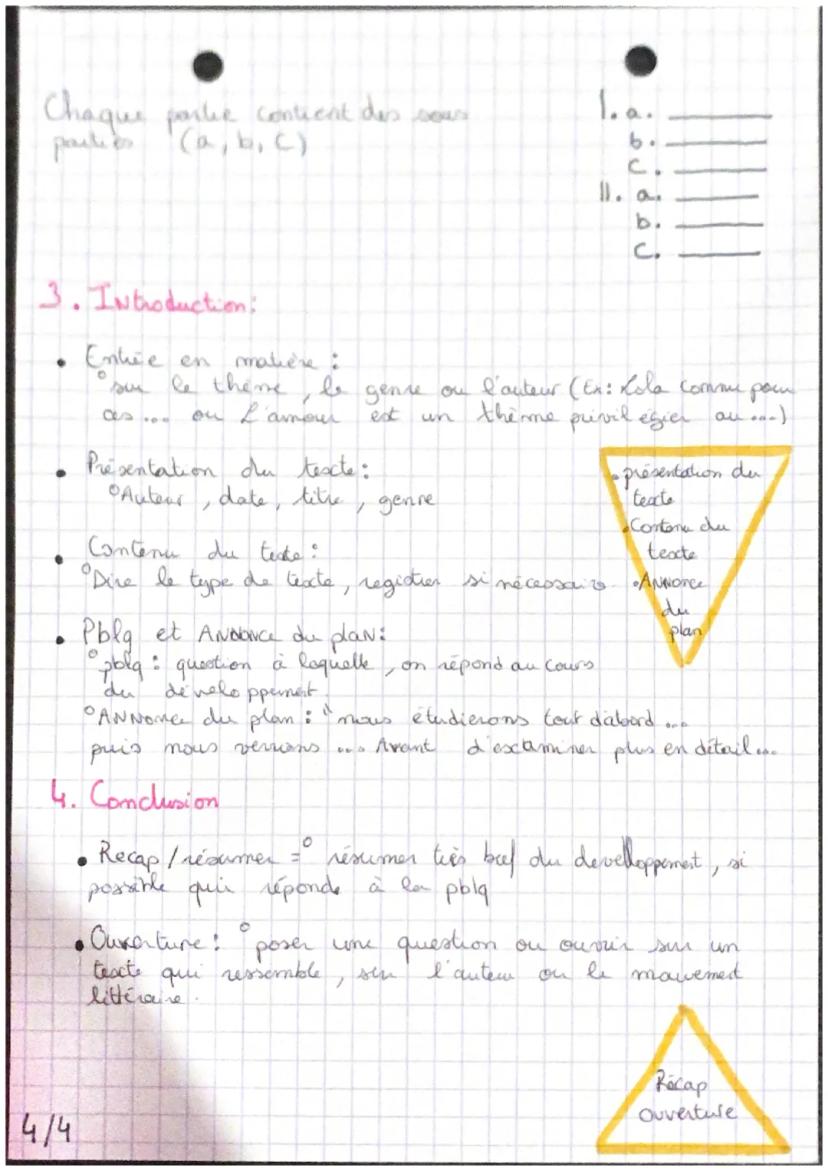 Chaque partie contient des sous
parties (a, b, c)
I. a.
b.
c.
II. a.
b.
c.
3. Introduction:
• Entrée en matière :
° sur le thème, le genre ou l'auteur (Ex: Zola connu pour
ces... ou L'amour est un thème privilégier au ...)
• Présentation du texte:
° Auteur, date, titre, genre
• Contenu du texte :
° Dire le type de texte, registre si nécessaire.
• Pblq et Annonce du plan:
° pblq : question à laquelle, on répond au cours
du développement
° Annonce du plan : "nous étudierons tout d'abord ...
puis nous verrons ... Avant d'examiner plus en détail...
• présentation du
texte
• Contenu du
texte
• Annonce
du
plan
4. Conclusion
• Recap / résumer =° résumer très bref du develloppement, si
possible qui réponde à la pblq
• Ouverture : ° poser une question ou ouvrir sur un
texte qui ressemble, sur l'auteur ou le mouvement
littéraire.
Récap
ouverture
4/4